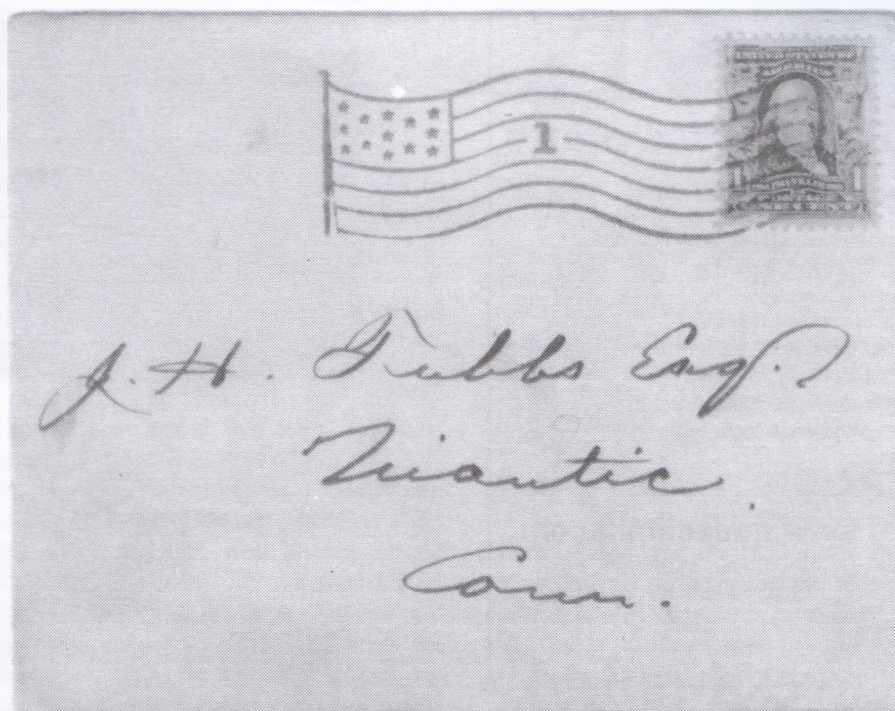 1
J. H. Tubbs Esq.
Niantic
Conn.